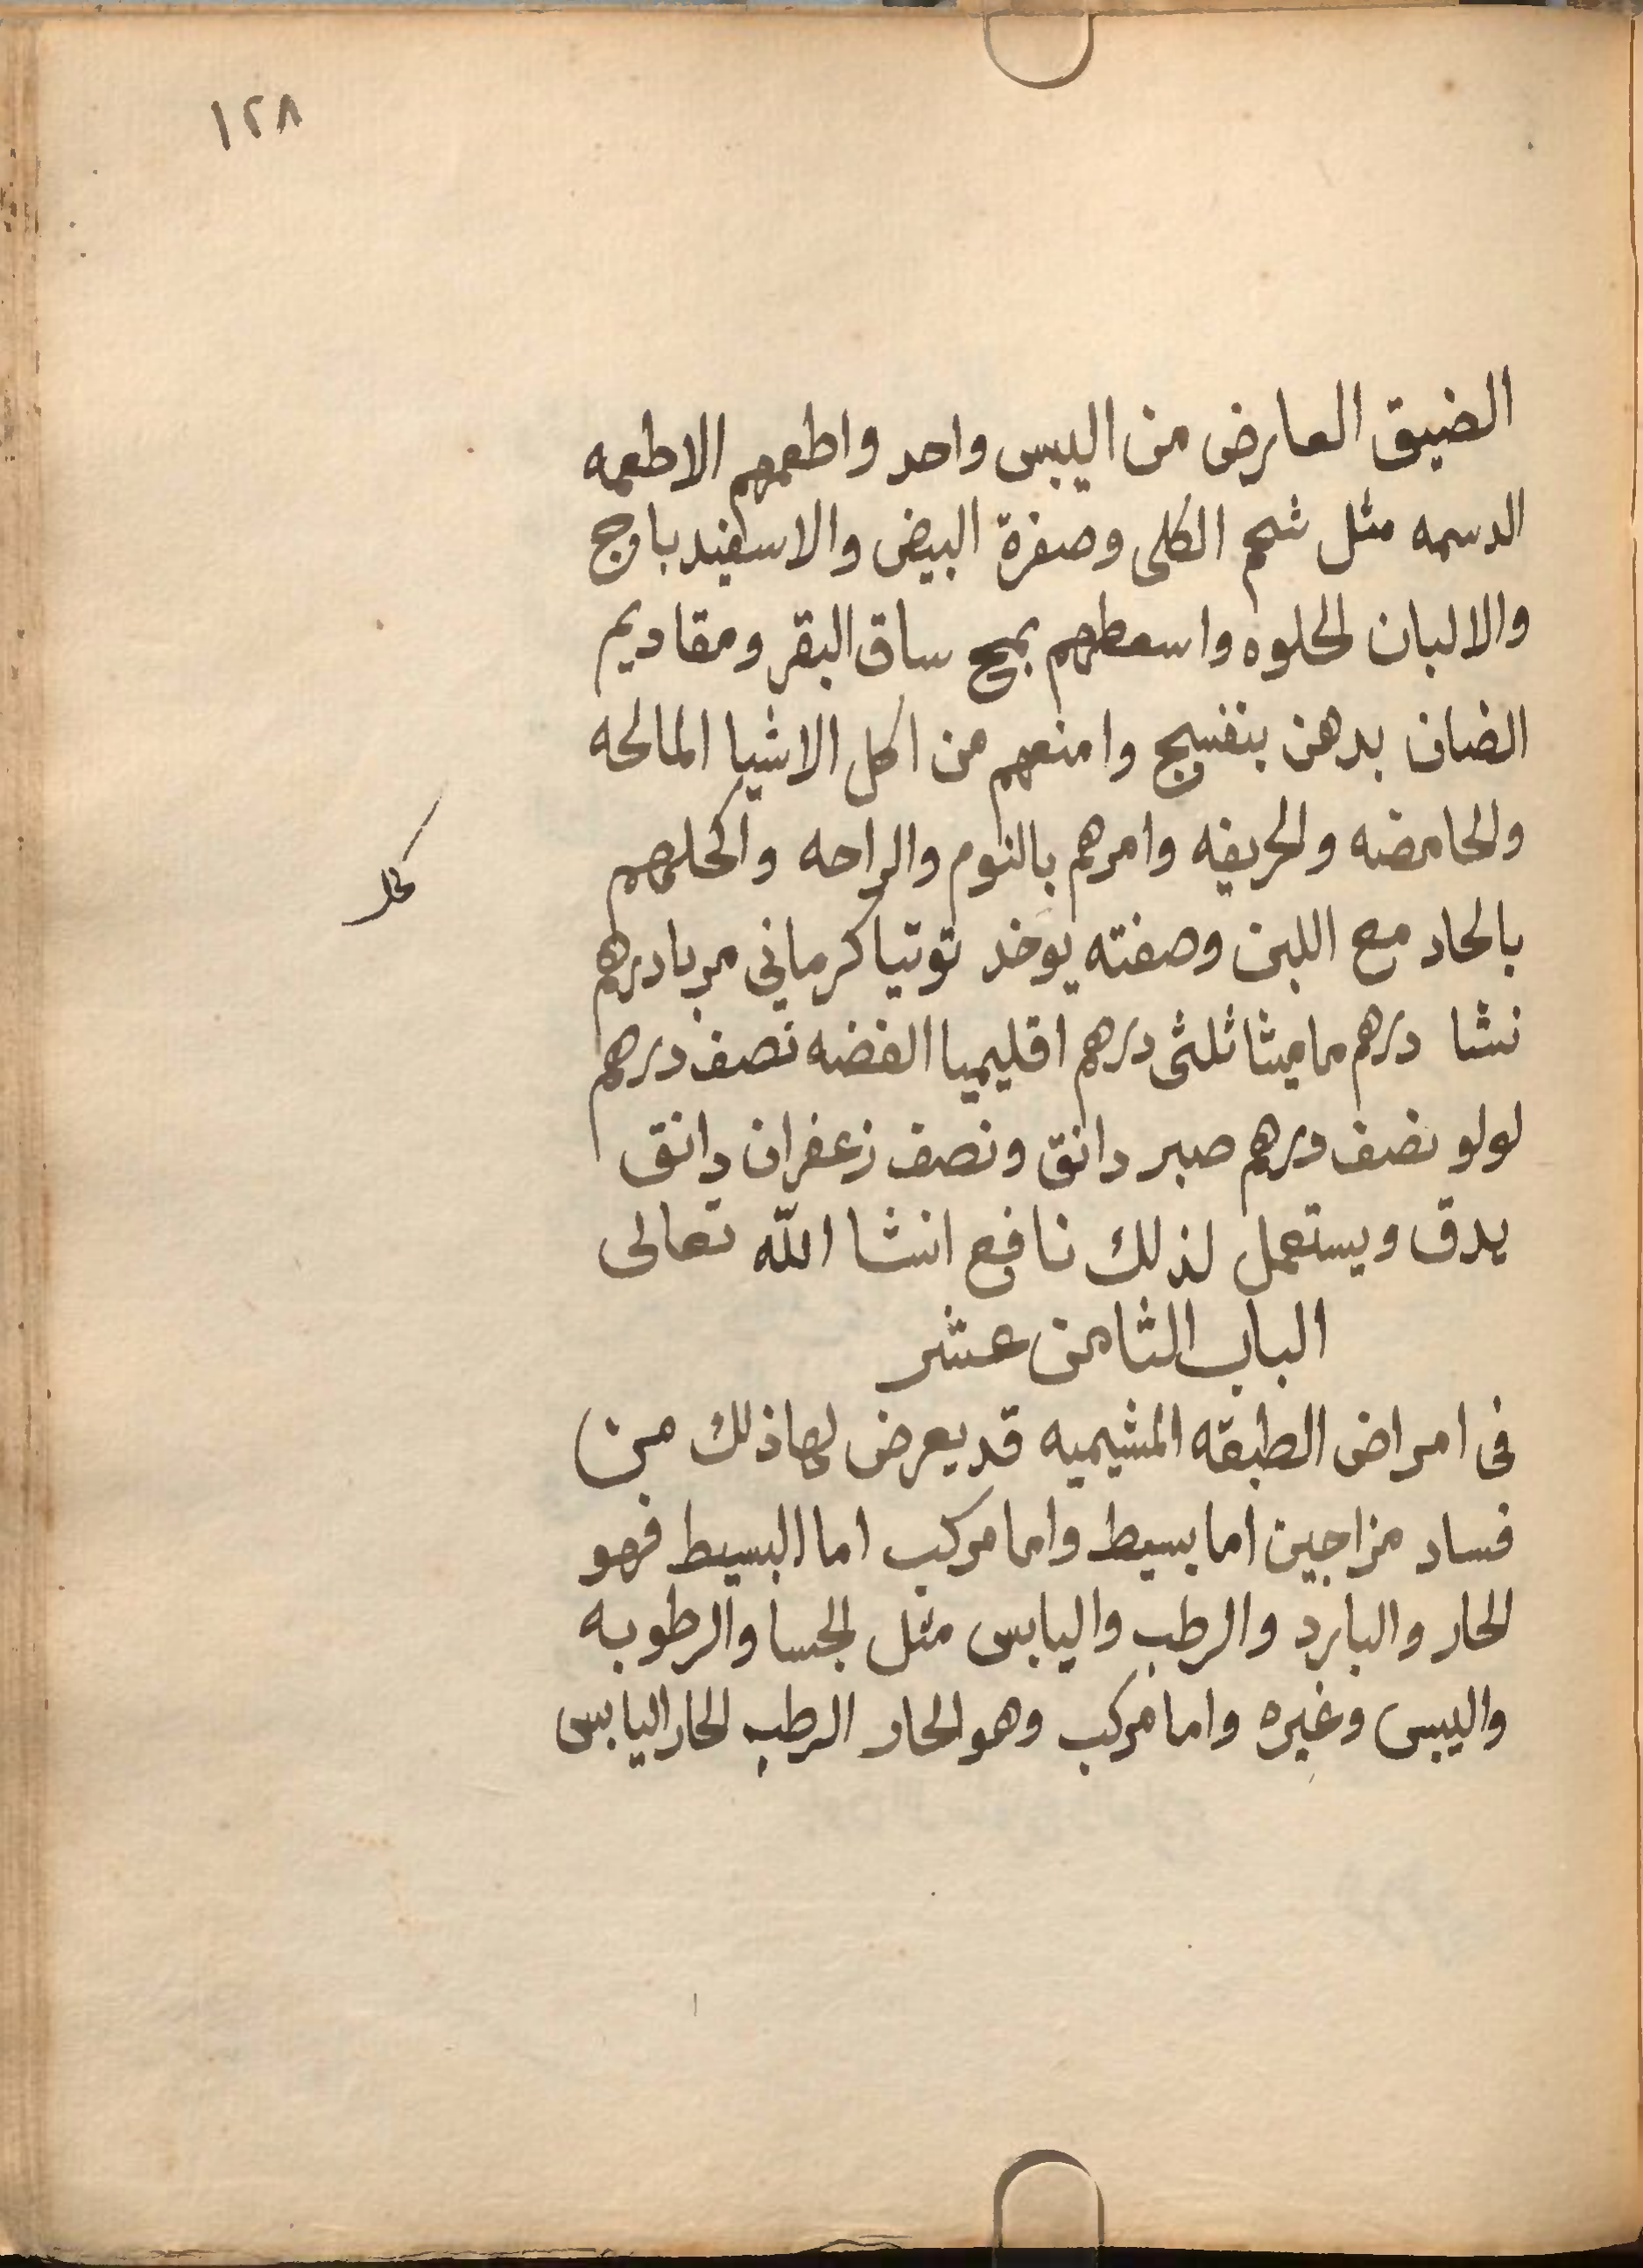 ١٢٨
الضيق العارض من اليبس واحد واطعمهم الاطعمه
الدسمه مثل شحم الكلى وصفرة البيض والاسفيدباوج
والالبان الحلوه واسعطهم بمخ ساق البقر ومقاديم
الضان بدهن بنفسج وامنعهم من اكل الاشيا المالحه
والحامضه والحريفه وامرهم بالنوم والراحه واكحلهم
كحل
بالحاد مع اللبن وصفته يوخد توتيا كرماني مربا درهم
نشا درهم ماميثا ثلثى درهم اقليميا الفضه نصف درهم
لولو نصف درهم صبر دانق ونصف زعفران دانق
يدق ويستعمل لذلك نافع انشا الله تعالى
الباب الثامن عشر
فى امراض الطبقه المشيميه قد يعرض لها ذلك من
فساد مزاجين اما بسيط واما مركب اما البسيط فهو
الحار والبارد والرطب واليابس مثل الجسا والرطوبه
واليبس وغيره واما مركب وهو الحار الرطب الحار اليابس